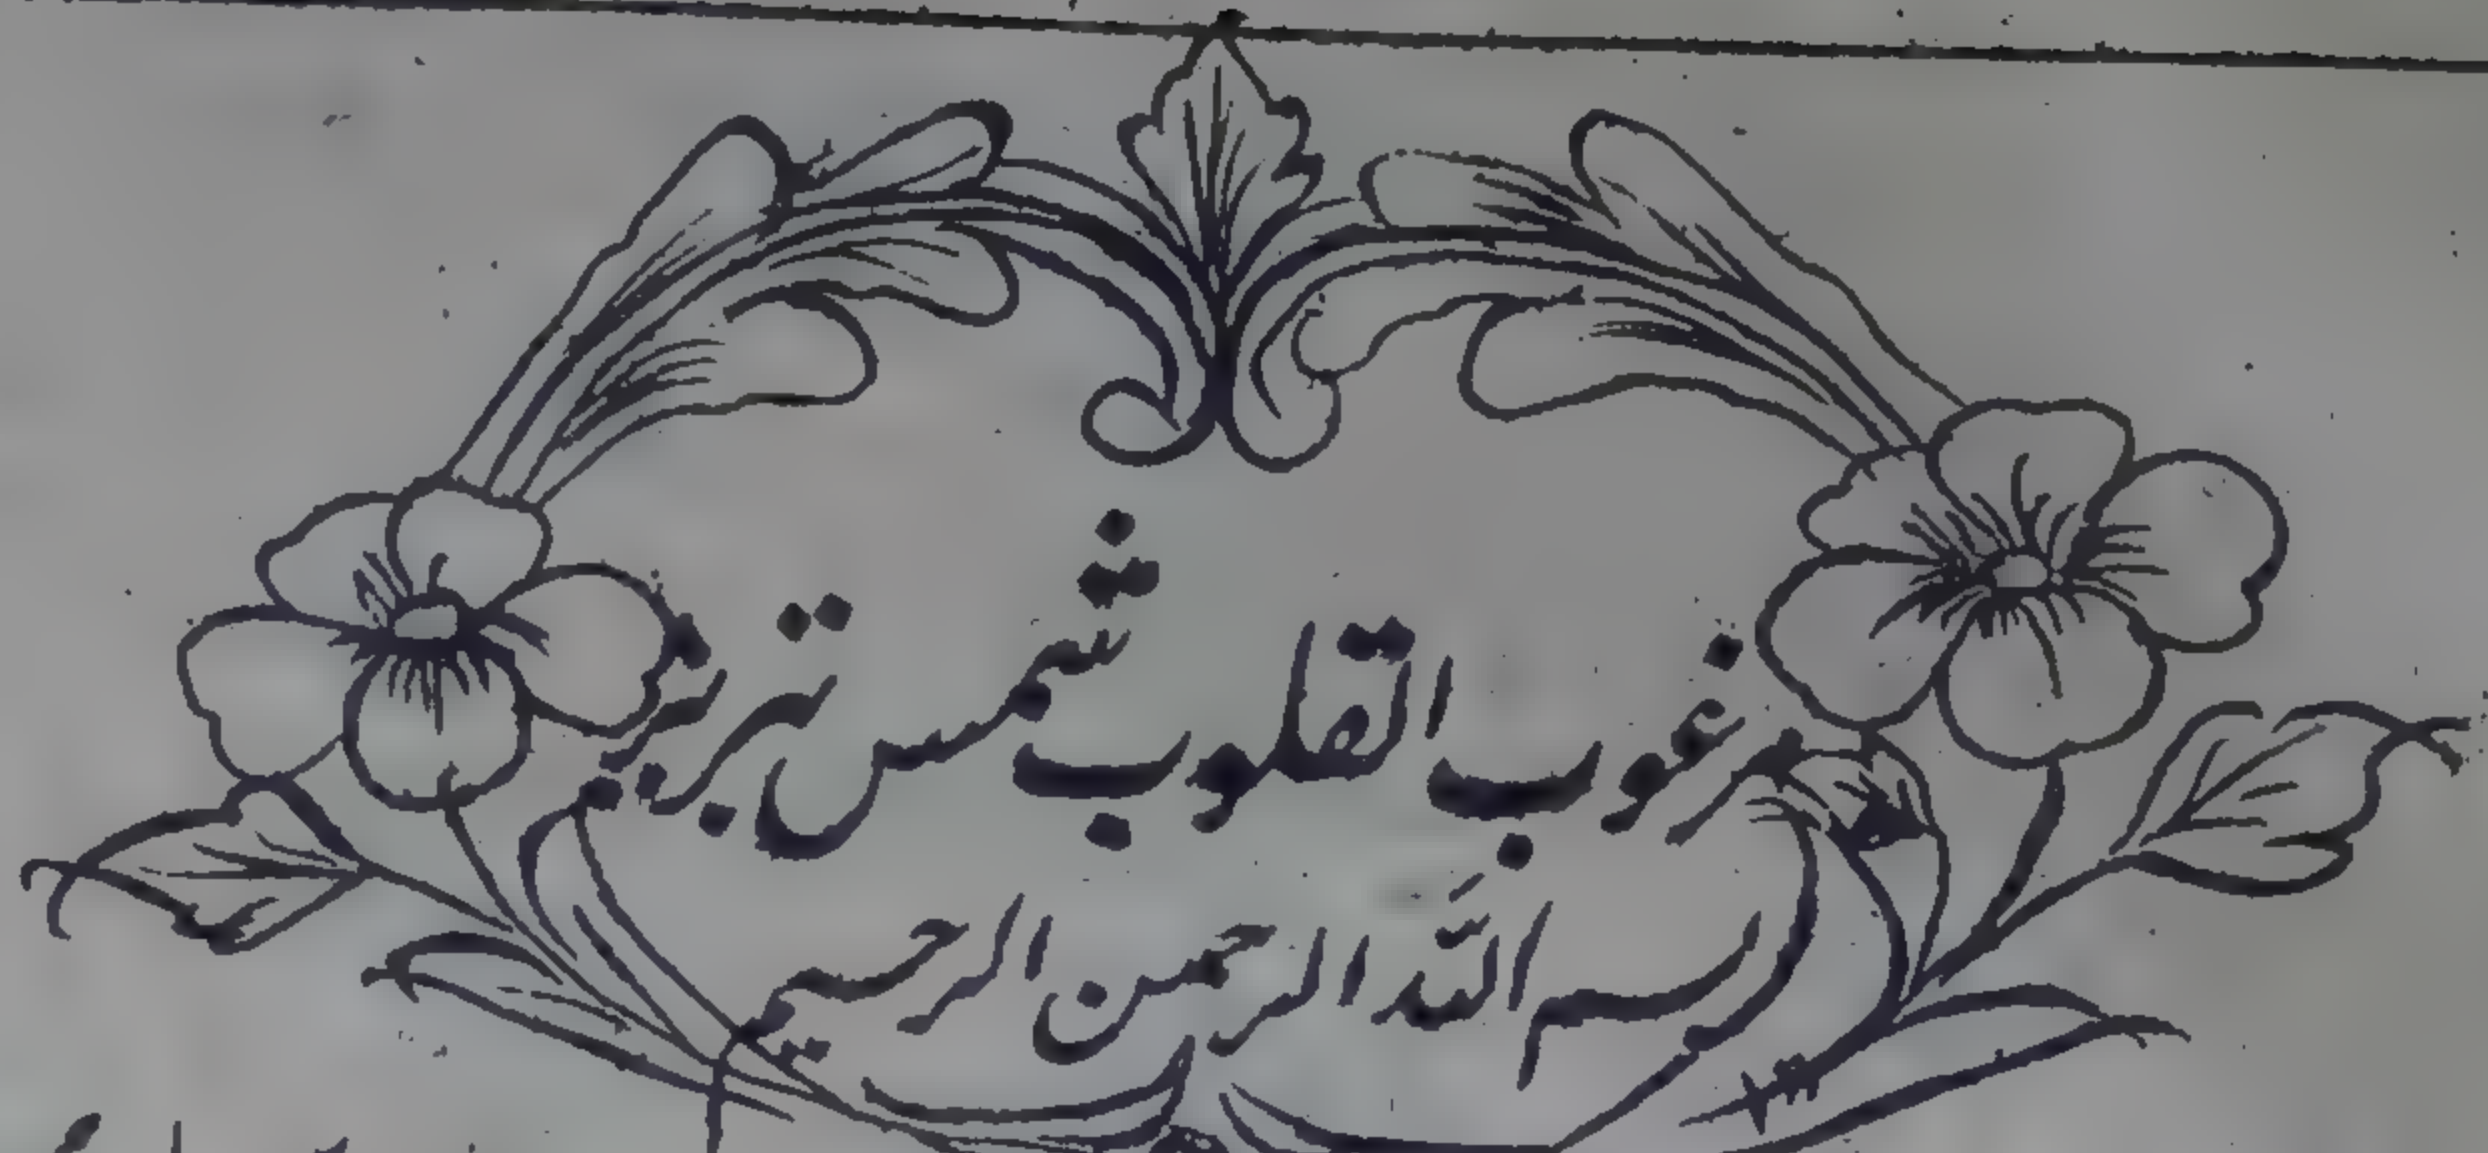 مرغوب القلوب شمس تبریز
بسم الله الرحمن الرحیم